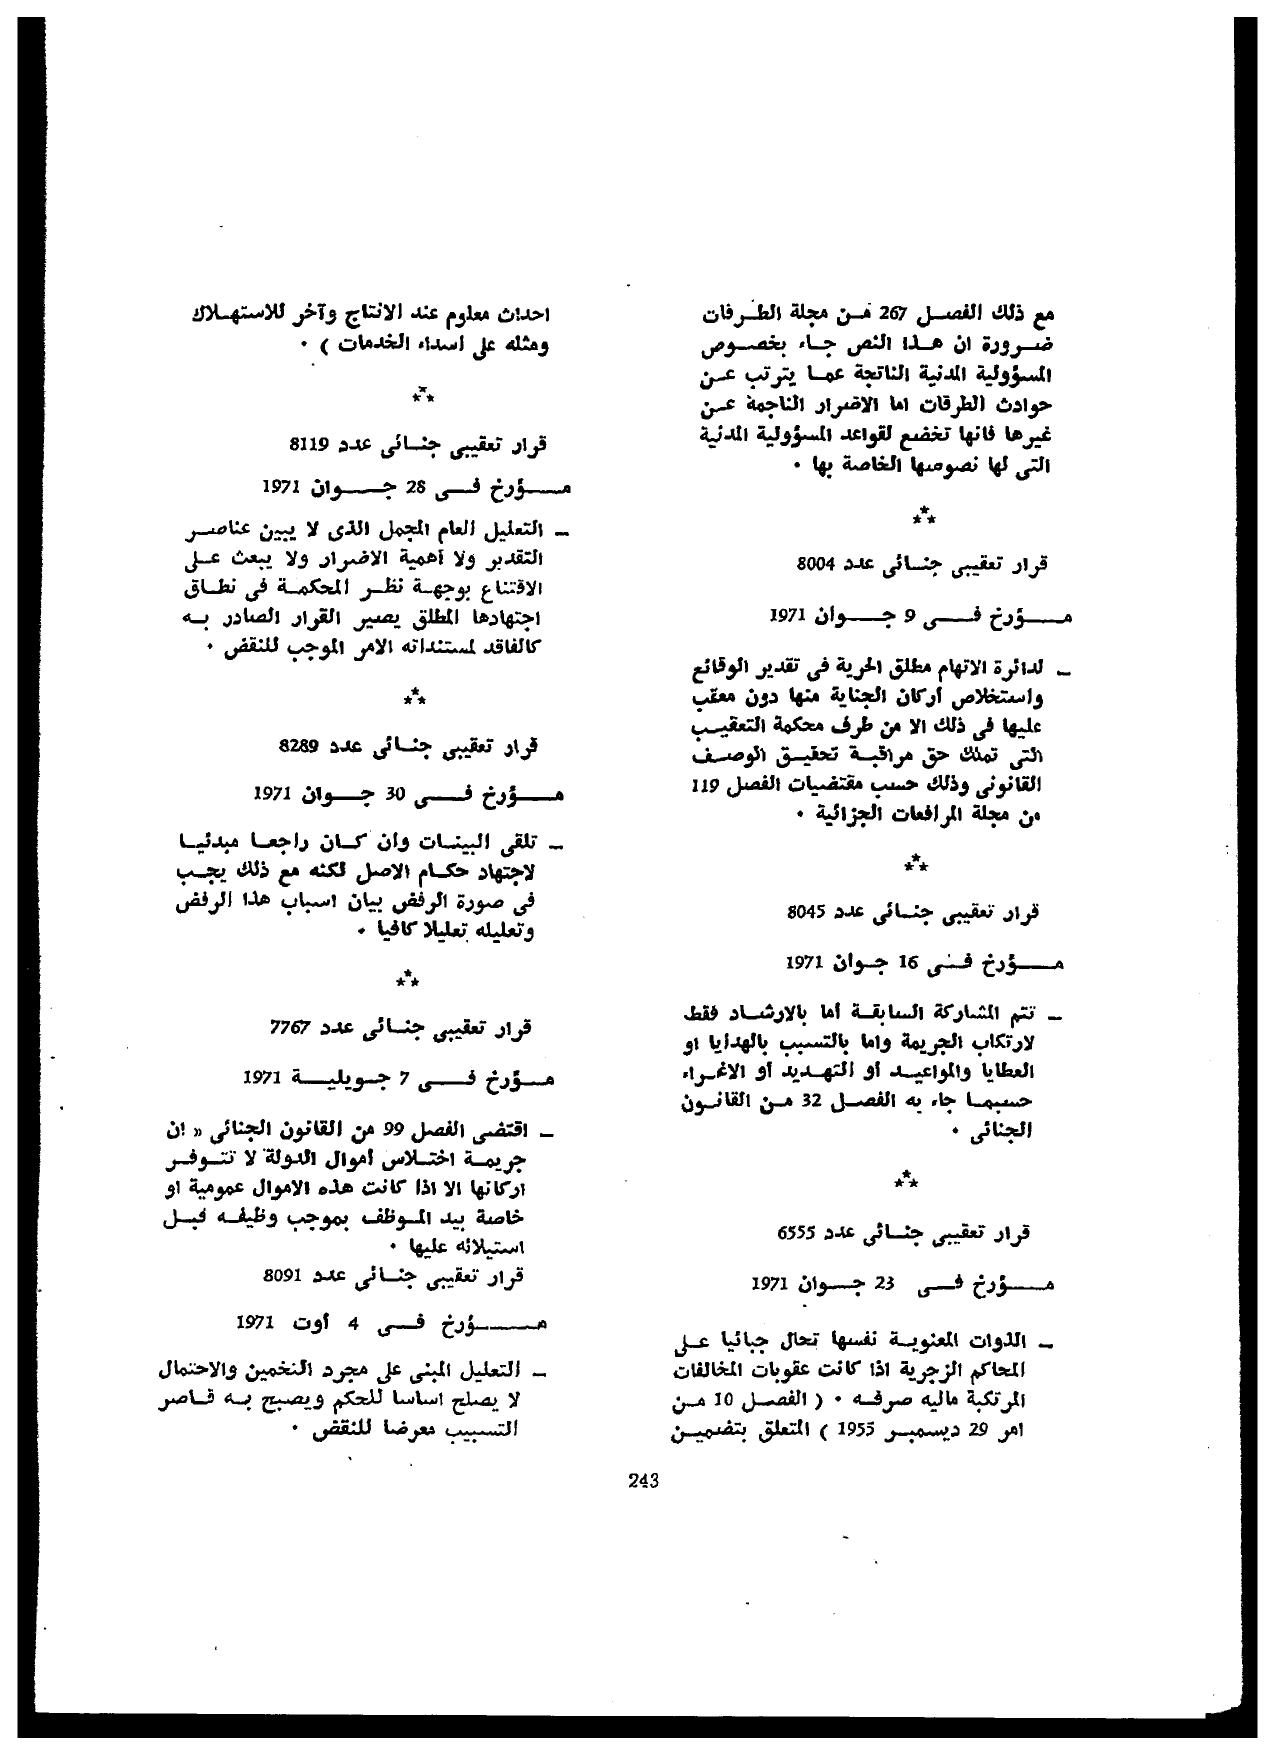 مع ذلك الفصل 267 من مجلة الطرقات
ضرورة ان هذا النص جاء بخصوص
المسؤولية المدنية الناتجة عما يترتب عن
حوادث الطرقات اما الاضرار الناجمة عن
غيرها فانها تخضع لقواعد المسؤولية المدنية
التي لها نصوصها الخاصة بها .
***
قرار تعقيبي جنائي عدد 8004
مؤرخ في 9 جوان 1971
– لدائرة الاتهام مطلق الحرية في تقدير الوقائع
واستخلاص أركان الجناية منها دون معقب
عليها في ذلك الا من طرف محكمة التعقيب
التي تملك حق مراقبة تحقيق الوصف
القانوني وذلك حسب مقتضيات الفصل 119
من مجلة المرافعات الجزائية .
***
قرار تعقيبي جنائي عدد 8045
مؤرخ في 16 جوان 1971
– تتم المشاركة السابقة أما بالارشاد فقط
لارتكاب الجريمة واما بالتسبب بالهدايا او
العطايا والمواعيد أو التهديد أو الاغراء
حسبما جاء به الفصل 32 من القانون
الجنائي .
***
قرار تعقيبي جنائي عدد 6555
مؤرخ في 23 جوان 1971
– الذوات المعنوية نفسها تحال جبائيا على
المحاكم الزجرية اذا كانت عقوبات المخالفات
المرتكبة ماليه صرفه . ( الفصل 10 من
امر 29 ديسمبر 1955 ) المتعلق بتضمين
احداث معلوم عند الانتاج وآخر للاستهلاك
ومثله على اسداء الخدمات ) .
***
قرار تعقيبي جنائي عدد 8119
مؤرخ في 28 جوان 1971
– التعليل العام المجمل الذي لا يبين عناصر
التقدير ولا أهمية الاضرار ولا يبعث على
الاقتناع بوجهة نظر المحكمة في نطاق
اجتهادها المطلق يصير القرار الصادر به
كالفاقد لمستنداته الامر الموجب للنقض .
***
قرار تعقيبي جنائي عدد 8289
مؤرخ في 30 جوان 1971
– تلقي البينات وان كان راجعا مبدئيا
لاجتهاد حكام الاصل لكنه مع ذلك يجب
في صورة الرفض بيان اسباب هذا الرفض
وتعليله تعليلا كافيا .
***
قرار تعقيبي جنائي عدد 7767
مؤرخ في 7 جويلية 1971
– اقتضى الفصل 99 من القانون الجنائي « ان
جريمة اختلاس أموال الدولة لا تتوفر
اركانها الا اذا كانت هذه الاموال عمومية او
خاصة بيد الموظف بموجب وظيفه قبل
استيلائه عليها .
قرار تعقيبي جنائي عدد 8091
مؤرخ في 4 أوت 1971
– التعليل المبني على مجرد التخمين والاحتمال
لا يصلح اساسا للحكم ويصبح به قاصر
التسبيب معرضا للنقض .
243